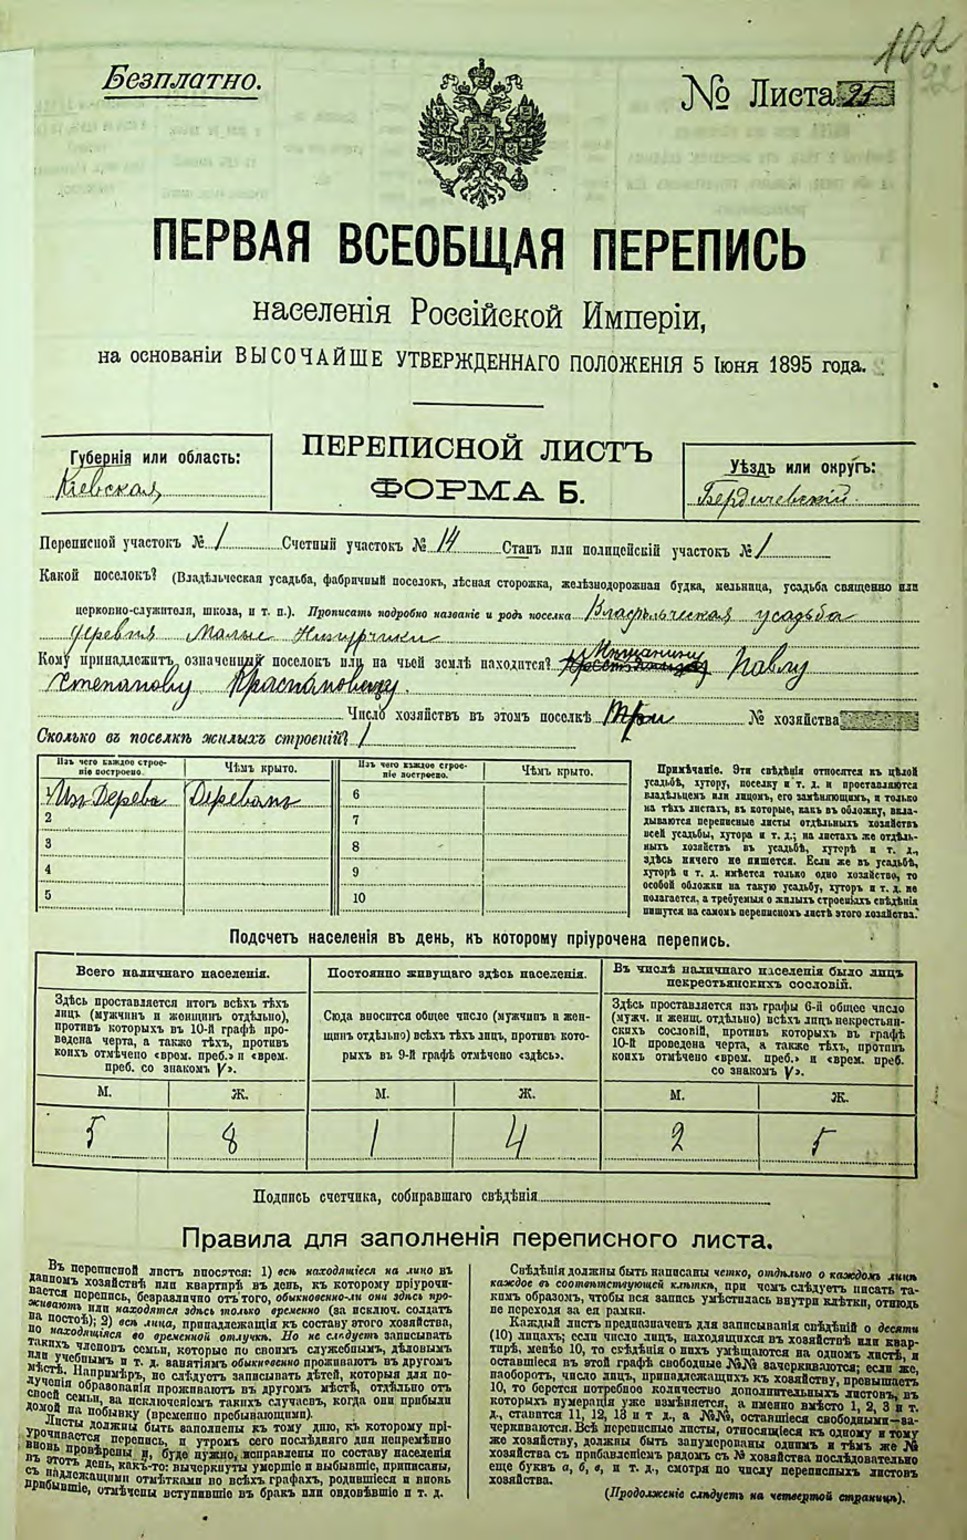 102
Безплатно.
№ Листа 25
ПЕРВАЯ ВСЕОБЩАЯ ПЕРЕПИСЬ
населенія Россійской Имперіи,
на основаніи ВЫСОЧАЙШЕ УТВЕРЖДЕННАГО ПОЛОЖЕНІЯ 5 Іюня 1895 года.
ПЕРЕПИСНОЙ ЛИСТЪ
ФОРМА Б.
Губернія или область:
Кіевская
Уѣздъ или округъ:
Бердичевскій
Переписной участокъ № 1 Счетный участокъ № 14 Станъ или полицейскій участокъ № 1
Какой поселокъ? (Владѣльческая усадьба, фабричный поселокъ, лѣсная сторожка, желѣзнодорожная будка, мельница, усадьба священно или
церковно-служителя, школа, и т. п.). Прописать подробно названіе и родъ поселка Владѣльческая усадьба
деревня Малые
Кому принадлежитъ означенный поселокъ или на чьей землѣ находится? Мѣщанину Павлу
Степанову
Число хозяйствъ въ этомъ поселкѣ Три № хозяйства
Сколько въ поселкѣ жилыхъ строеній? 1
Изъ чего каждое строеніе построено. Чѣмъ крыто. Изъ чего каждое строеніе построено. Чѣмъ крыто.
Изъ Дерева Деревомъ 6
2 7
3 8
4 9
5 10
Примѣчаніе. Эти свѣдѣнія относятся къ цѣлой
усадьбѣ, хутору, поселку и т. д. и проставляются
владѣльцемъ или лицомъ, его замѣняющимъ, и только
на тѣхъ листахъ, въ которые, какъ въ обложку, вкла-
дываются переписные листы отдѣльныхъ хозяйствъ
всей усадьбы, хутора и т. д.; на листахъ же отдѣль-
ныхъ хозяйствъ въ усадьбѣ, хуторѣ и т. д.,
здѣсь ничего не пишется. Если же въ усадьбѣ,
хуторѣ и т. д. имѣется только одно хозяйство, то
особой обложки на такую усадьбу, хуторъ и т. д. не
полагается, а требуемыя о жилыхъ строеніяхъ свѣдѣнія
пишутся на самомъ переписномъ листѣ этого хозяйства.
Подсчетъ населенія въ день, къ которому пріурочена перепись.
Всего наличнаго населенія.
Здѣсь проставляется итогъ всѣхъ тѣхъ
лицъ (мужчинъ и женщинъ отдѣльно),
противъ которыхъ въ 10-й графѣ про-
ведена черта, а также тѣхъ, противъ
коихъ отмѣчено «врем. преб.» и «врем.
преб. со знакомъ V».
Постоянно живущаго здѣсь населенія.
Сюда вносится общее число (мужчинъ и жен-
щинъ отдѣльно) всѣхъ тѣхъ лицъ, противъ кото-
рыхъ въ 9-й графѣ отмѣчено «здѣсь».
Въ числѣ наличнаго населенія было лицъ
некрестьянскихъ сословій.
Здѣсь проставляется изъ графы 6-й общее число
(мужч. и женщ. отдѣльно) всѣхъ лицъ некрестьян-
скихъ сословій, противъ которыхъ въ графѣ
10-й проведена черта, а также тѣхъ, противъ
коихъ отмѣчено «врем. преб.» и «врем. преб.
со знакомъ V».
М. Ж. М. Ж. М. Ж.
5 8 1 4 2 5
Подпись счетчика, собиравшаго свѣдѣнія
Правила для заполненія переписного листа.
Въ переписной листъ вносятся: 1) всѣ находящіеся на лицо въ
данномъ хозяйствѣ или квартирѣ въ день, къ которому пріурочи-
вается перепись, безразлично отъ того, обыкновенно-ли они здѣсь про-
живаютъ или находятся здѣсь только временно (за исключ. солдатъ
на постоѣ); 2) всѣ лица, принадлежащія къ составу этого хозяйства,
но находящіяся во временной отлучкѣ. Но не слѣдуетъ записывать
такихъ членовъ семьи, которые по своимъ служебнымъ, дѣловымъ
или учебнымъ и т. д. занятіямъ обыкновенно проживаютъ въ другомъ
мѣстѣ. Напримѣръ, не слѣдуетъ записывать дѣтей, которыя для по-
лученія образованія проживаютъ въ другомъ мѣстѣ, отдѣльно отъ
своей семьи, за исключеніемъ такихъ случаевъ, когда они прибыли
домой на побывку (временно пребывающими).
Листы должны быть заполнены къ тому дню, къ которому прі-
урочивается перепись, и утромъ сего послѣдняго дня непремѣнно
вновь провѣрены и, буде нужно, исправлены по составу населенія
въ этотъ день, какъ-то: вычеркнуты умершіе и выбывшіе, приписаны,
съ надлежащими отмѣтками во всѣхъ графахъ, родившіеся и вновь
прибывшіе, отмѣчены вступившіе въ бракъ или овдовѣвшіе и т. д.
Свѣдѣнія должны быть написаны четко, отдѣльно о каждомъ лицѣ
каждое въ соотвѣтствующей клѣткѣ, при чемъ слѣдуетъ писать та-
кимъ образомъ, чтобы вся запись умѣстилась внутри клѣтки, отнюдь
не переходя за ея рамки.
Каждый листъ предназначенъ для записыванія свѣдѣній о десяти
(10) лицахъ; если число лицъ, находящихся въ хозяйствѣ или квар-
тирѣ, менѣе 10, то свѣдѣнія о нихъ умѣщаются на одномъ листѣ, и
оставшіеся въ этой графѣ свободные №№ зачеркиваются; если же,
наоборотъ, число лицъ, принадлежащихъ къ хозяйству, превышаетъ
10, то берется потребное количество дополнительныхъ листовъ, въ
которыхъ нумерація уже измѣняется, а именно вмѣсто 1, 2, 3 и т.
д., ставится 11, 12, 13 и т д., а №№, оставшіеся свободными—за-
черкиваются. Всѣ переписные листы, относящіеся къ одному и тому
же хозяйству, должны быть занумерованы однимъ и тѣмъ же №
хозяйства съ прибавленіемъ рядомъ съ № хозяйства послѣдовательно
еще буквъ а, б, в, и т. д., смотря по числу переписныхъ листовъ
хозяйства.
(Продолженіе слѣдуетъ на четвертой страницѣ).